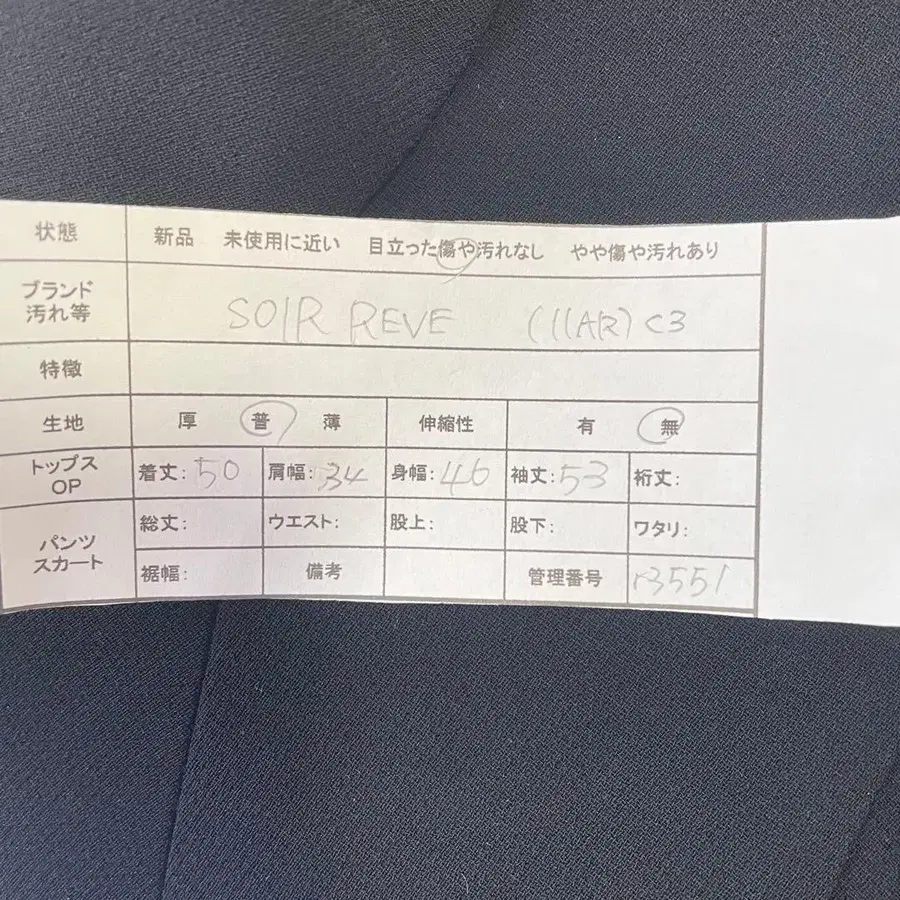 状態 新品 未使用に近い 目立った傷や汚れなし やや傷や汚れあり
ブランド
汚れ等 SOIR REVE (11AR) C3
特徴
生地 厚 普 薄 伸縮性 有 無
トップス
OP 着丈: 50 肩幅: 34 身幅: 46 袖丈: 53 裄丈:
パンツ
スカート 総丈: ウエスト: 股上: 股下: ワタリ:
裾幅: 備考 管理番号 r3551